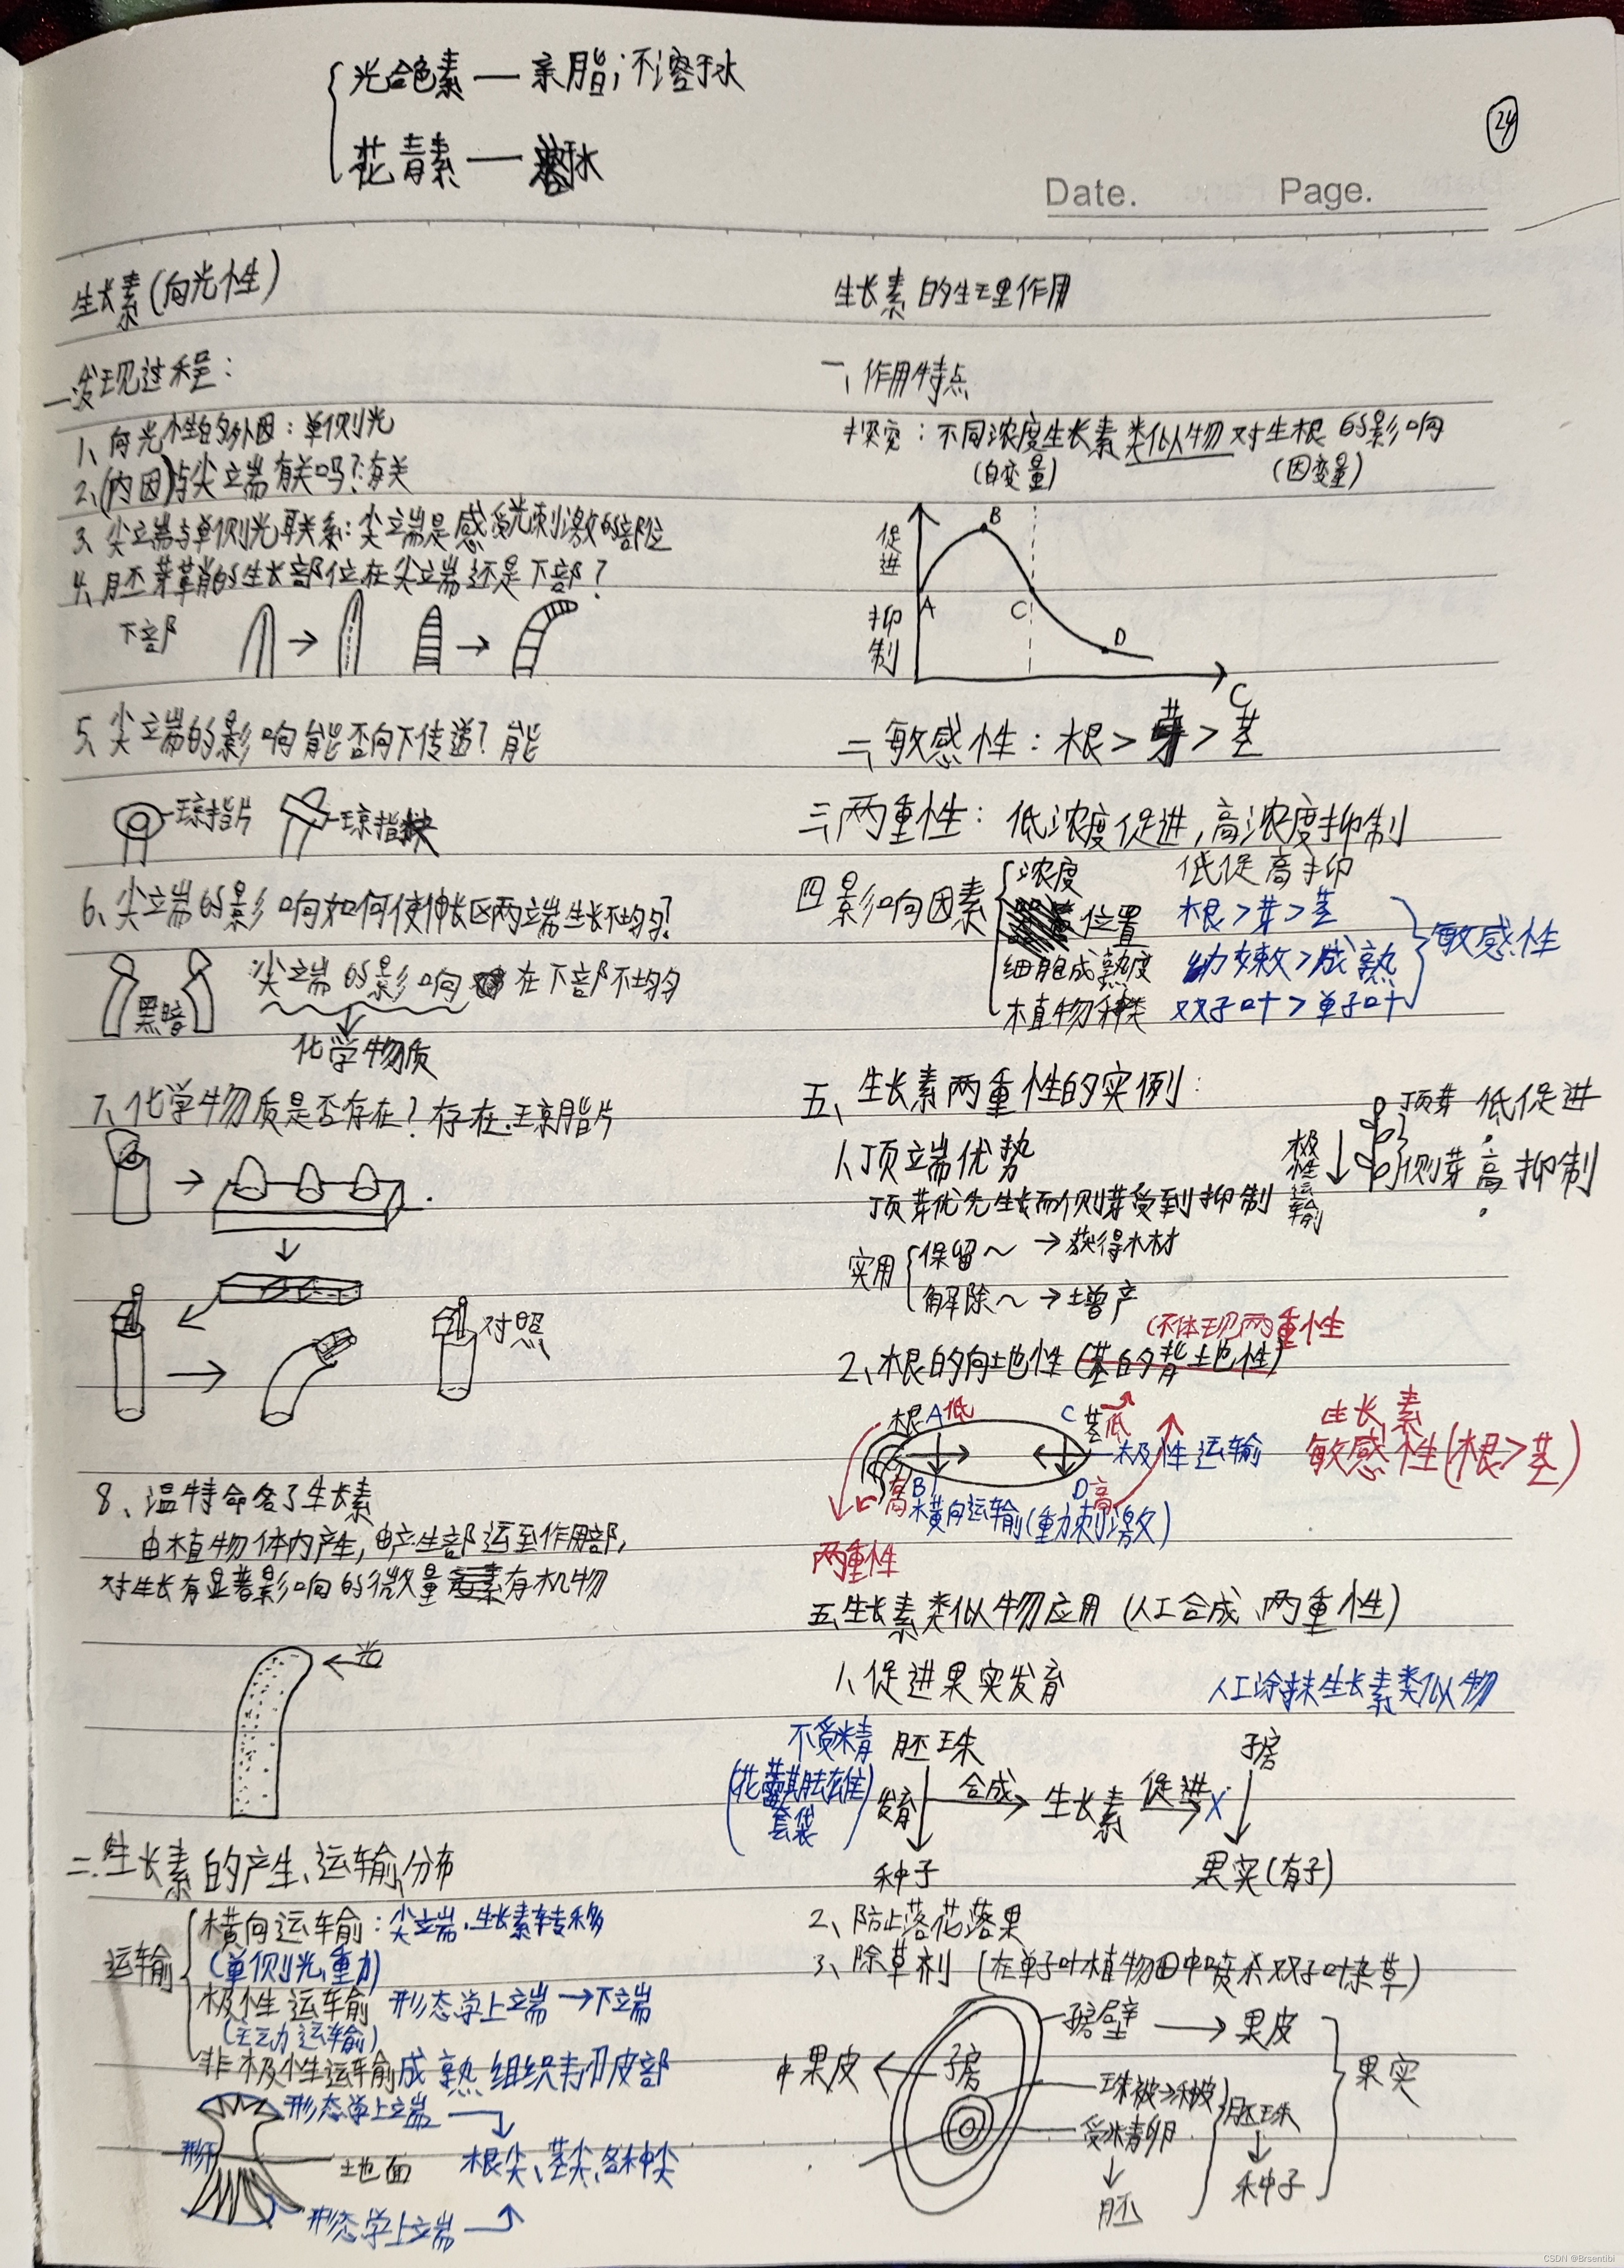 光合色素 — 亲脂;不溶于水
花青素 — 溶于水
24
Date. Page.
生长素(向光性)
一.发现过程:
1、向光性的外因:单侧光
2、(内因)与尖端有关吗?有关
3、尖端与单侧光联系:尖端是感受光刺激的部位
4、胚芽鞘的生长部位在尖端还是下部?
下部
5、尖端的影响能否向下传递?能
琼指片
琼指块
6、尖端的影响如何使伸长区两端生长不均匀?
黑暗
尖端的影响在下部不均匀
化学物质
7、化学物质是否存在?存在.琼脂片
对照
8、温特命名了生长素
由植物体内产生,由产生部运至作用部,
对生长有显著影响的微量有机物
光
二.生长素的产生、运输、分布
运输
横向运输:尖端.生长素转移
(单侧光,重力)
极性运输 形态学上端→下端
(主动运输)
非极性运输 成熟组织韧皮部
形态学上端
形下
土地面
根尖、茎尖、各种尖
形态学上端
生长素的生理作用
一、作用特点
探究:不同浓度生长素类似物对生根的影响
(自变量) (因变量)
促进
抑制
A B C D
C
二、敏感性:根>芽>茎
三、两重性:低浓度促进,高浓度抑制
四 影响因素
浓度 低促高抑
位置 根>芽>茎
细胞成熟度 幼嫩>成熟
植物种类 双子叶>单子叶
敏感性
五、生长素两重性的实例:
1、顶端优势
顶芽优先生长而侧芽受到抑制
极性运输
顶芽 低促进
侧芽 高抑制
实用
保留~→获得木材
解除~→增产
(不体现两重性
2、根的向地性(茎的背地性)
根 A 低 C 茎 低
极性运输
高 B D 高
横向运输(重力刺激)
两重性
生长素
敏感性(根>茎)
五.生长素类似物应用(人工合成、两重性)
1、促进果实发育
人工涂抹生长素类似物
不受精
(花蕾期去雄
套袋)
胚珠
发育
种子
合成
生长素
促进
X
子房
果实(有子)
2、防止落花落果
3、除草剂(在单子叶植物田中喷杀双子叶杂草)
中果皮
子房
子房壁→果皮
珠被→种皮
受精卵
胚
胚珠
种子
果实
CSDN @Brsentibi